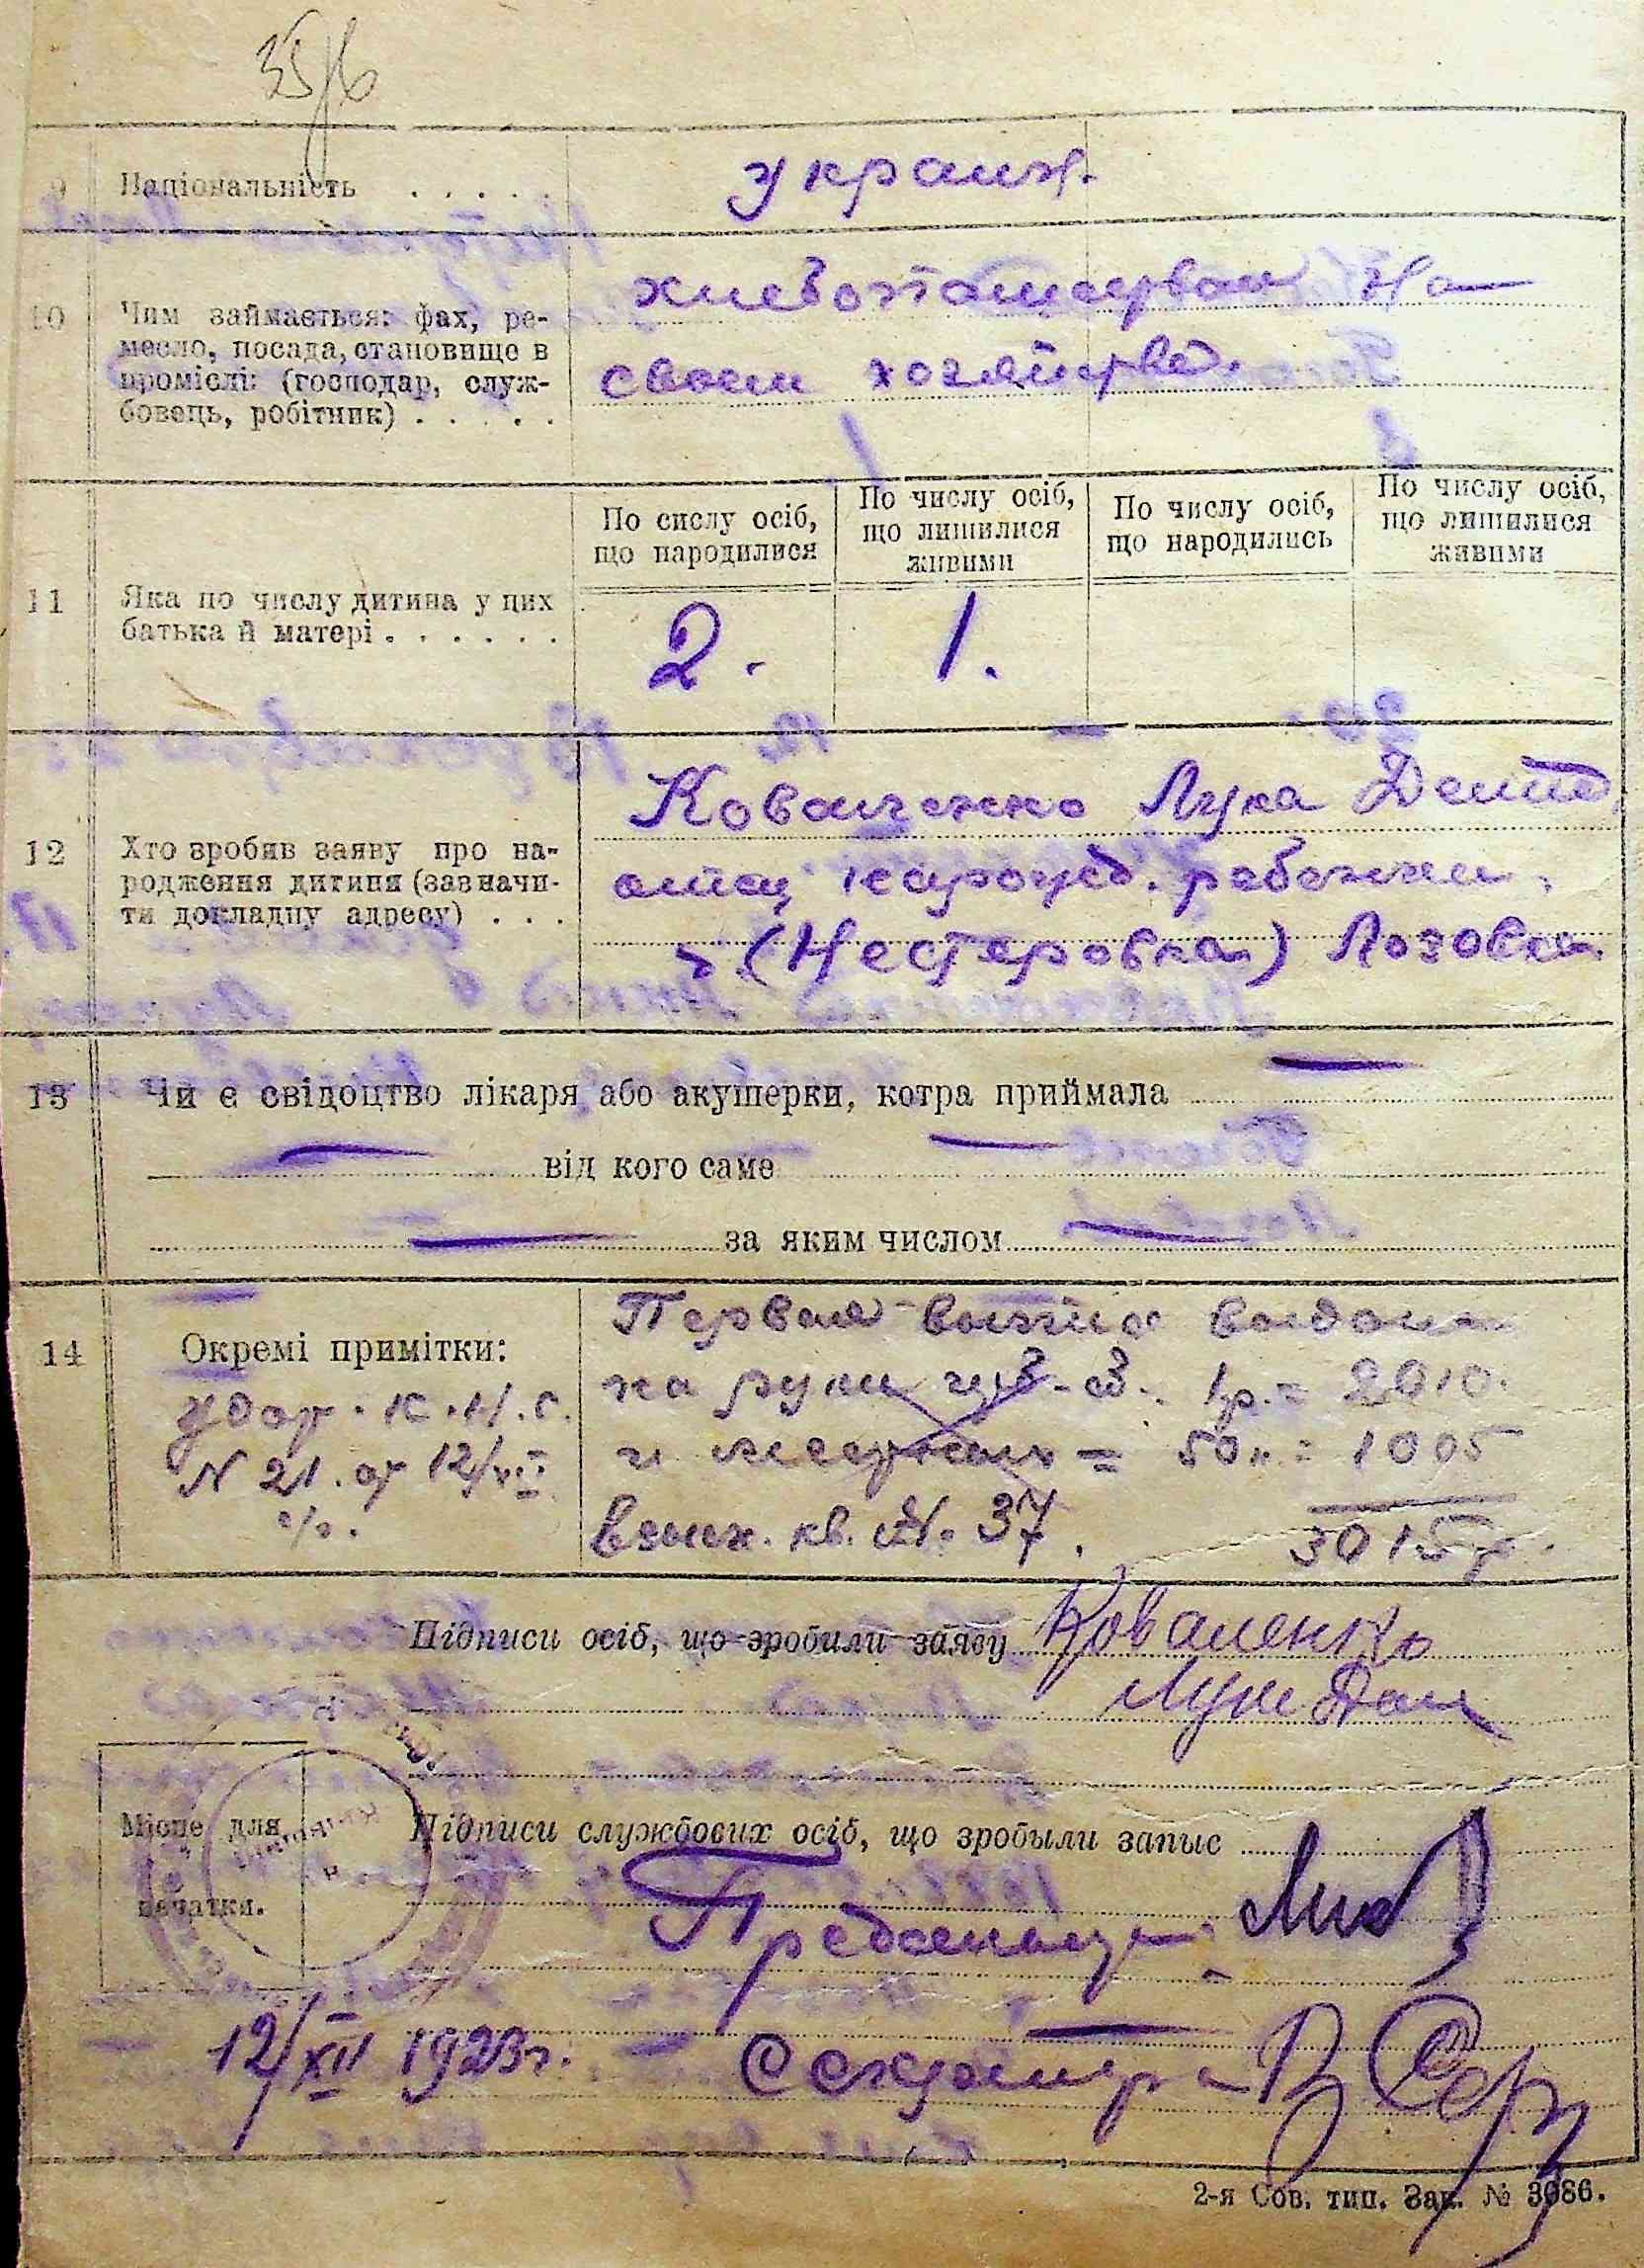 35/6
9 Національність . . . . . украин.
10 Чим займається: фах, ре-
месло, посада, становище в
проміслі: (господар, служ-
бовець, робітник) . . . . .
на
своем хозяйстве.
11 Яка по числу дитина у цих
батька й матері . . . . . .
По сислу осіб,
що народилися
По числу осіб,
що лишилися
живими
По числу осіб,
що народились
По числу осіб,
що лишилися
живими
2. 1.
12 Хто зробив заяву про на-
родження дитини (зазначи-
ти докладну адресу) . . .
Коваленко Лука Демид.
отец новорожд. ребенка.
(Нестеровка) Лозовка
13 Чи є свідоцтво лікаря або акушерки, котра приймала —
— від кого саме —
— за яким числом —
14 Окремі примітки:
удост. К.Н.С.
N 21. от 12/XII
с/г.
Первая выпись выдана
на руки 1р. = 2010.
и = 50к = 1005
взыск. кв. № 37. 3015р.
Підписи осіб, що зробили заяву Коваленко
Лука Дем
Місце для
печатки.
Підписи службових осіб, що зробыли запыс
Предсельсп:
12/XII 1923г. Секретарь
2-я Сов. тип. Зак. № 3086.